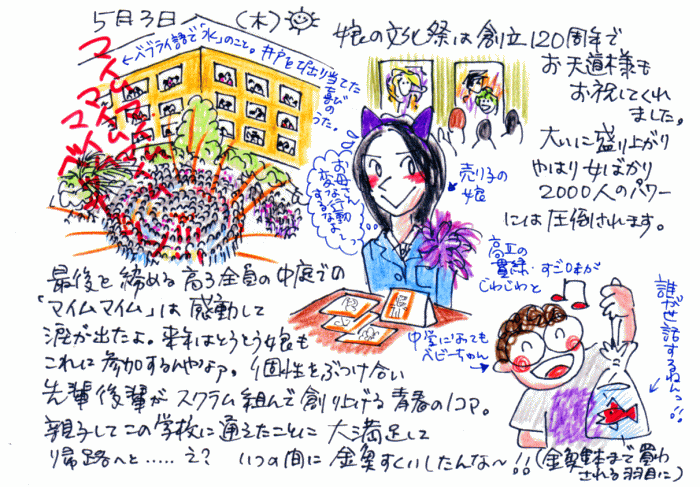 5月3日(木)
娘の文化祭は創立120周年で
お天道様も
お祝してくれ
ました。
大いに盛り上がり
やはり女ばかり
2000人のパワー
には圧倒されます。
←ヘブライ語で「水」のこと。井戸を掘り当てた
喜びの
うた。
マイムマイム
マイムマイム
お母さん
変な行動
するなよ
売り子の
娘
高Ⅱの
貫禄・すごみが
じわじわと
中学になっても
ベビーちゃん
誰がせ話するねんっ!!
最後を締める高3全員の中庭での
「マイムマイム」は感動して
涙が出たよ。来年はとうとう娘も
これに参加するんやなァ。個性をぶつけ合い
先輩後輩がスクラム組んで創り上げる青春の1コマ。
親子してこの学校に通えたことに大満足して
帰路へと……え?いつの間に金魚すくいしたんな〜!!(金魚鉢まで買わ
される羽目に)